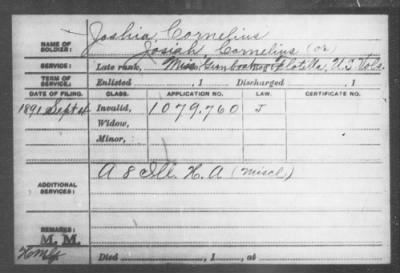 Joshia, Cornelius
NAME OF SOLDIER: Josiah, Cornelius (or)
SERVICE: Late rank, Miss. Gunboat Flotilla, U.S. Vols.
TERM OF SERVICE: Enlisted , 1 Discharged , 1
DATE OF FILING. CLASS. APPLICATION NO. LAW. CERTIFICATE NO.
1891 Sept Invalid, 1079.760 J
Widow,
Minor,
ADDITIONAL SERVICES: A 8 Ill. H. A (Miscl)
REMARKS:
M. M.
Died , 1 , at